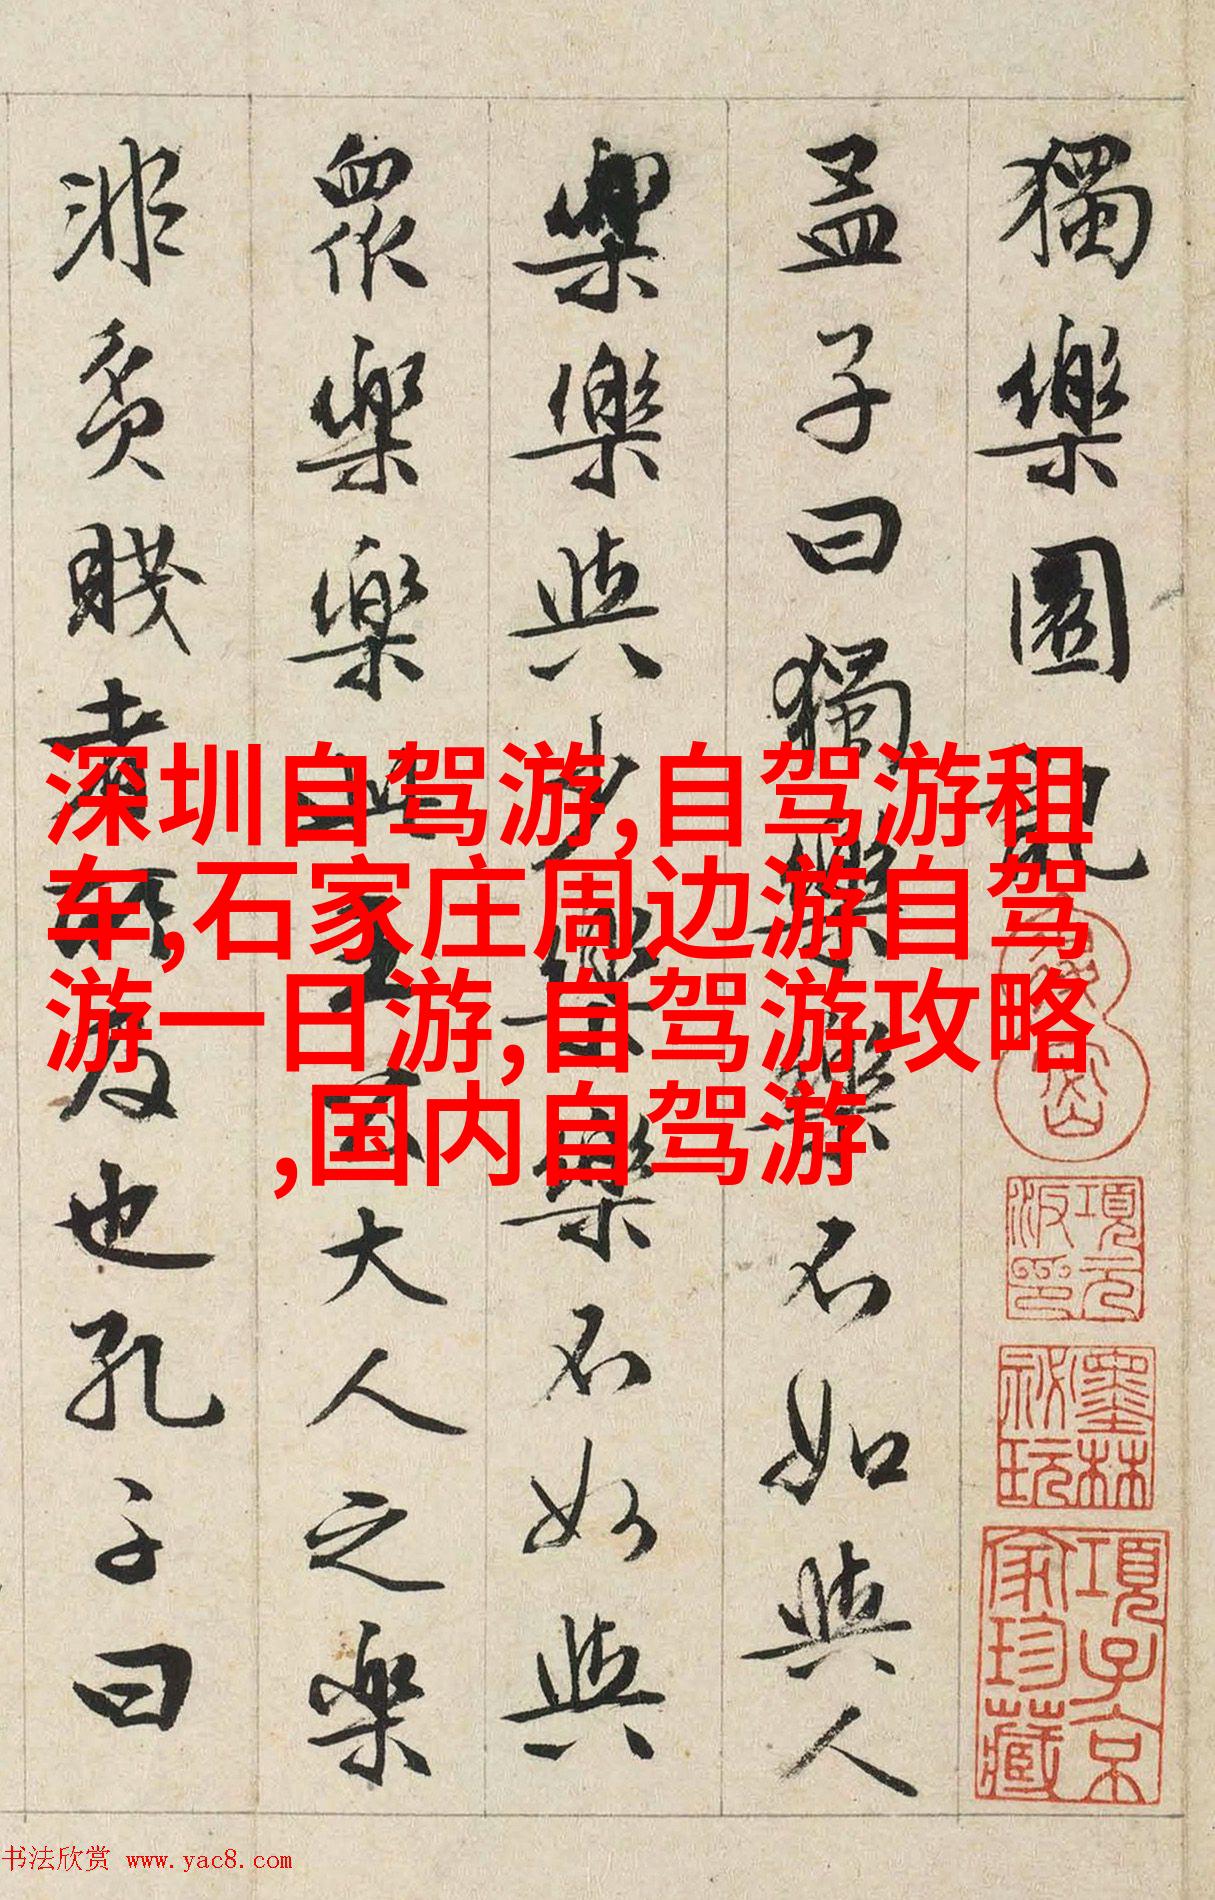 獨樂園記
孟子曰獨樂樂不如與人
樂樂與少樂樂不如與
眾樂樂此王公大人之樂
非貧賤者所及也孔子曰
深圳自驾游,自驾游租
车,石家庄周边游自驾
游一日游,自驾游攻略
,国内自驾游
項元汴印
墨林祕玩
項子京家珍藏
书法欣赏 www.yac8.com